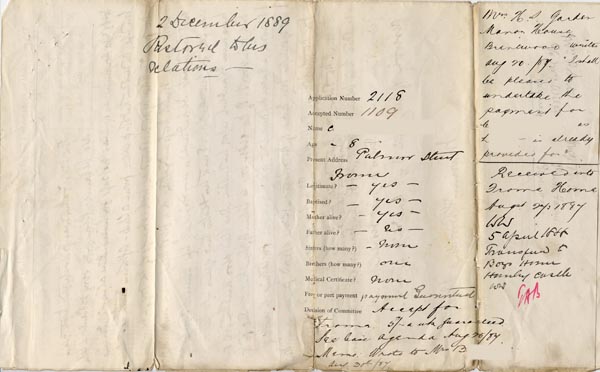 2 December 1889
Restored to his
relations —
Application Number 2118
Accepted Number 1109
Name C
Age - 8
Present Address Palmer Street
Frome
Legitimate? - yes -
Baptized? - yes -
Mother alive? - yes -
Father alive? - no -
Sisters (how many?) - none
Brothers (how many?) one
Medical Certificate? none
Free or part payment payment Guaranteed
Decision of Committee Accept for
Frome 5/- a wk guaranteed
See Case Agenda Aug 20/87.
Mem. Wrote to Mrs B
Aug 20th/87
H S
Manor House
Brentwood writes
Aug 20/87 "I shall
be pleased to
undertake the
payment for
as
is already
provided for"
Received into
Frome Home
Augst 27/1887
WW
5 April 1888
Transferred to
Boys Home
Hanley Castle
WW
GAB